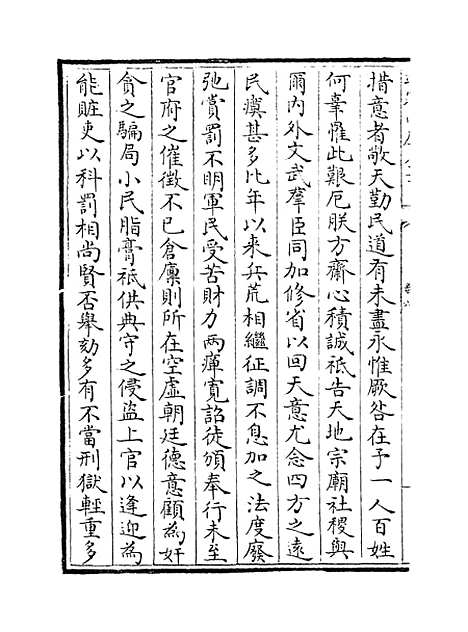 措意者敬天勤民道有未盡永惟厥咎在予一人百姓
何辜罹此艱厄朕方齋心積誠祗告天地宗廟社稷與
爾内外文武羣臣同加修省以回天意尤念四方之遠
民瘼甚多比年以來兵荒相繼征調不息加之法度廢
弛賞罰不明軍民受苦財力兩瘅寛詔徒頒奉行未至
官府之催徵不已倉廪則所在空虛朝廷德意顧為奸
貪之騙局小民脂膏祗供典守之侵盜上官以逢迎為
能賍吏以科罰相尚賢否舉劾多有不當刑獄輕重多